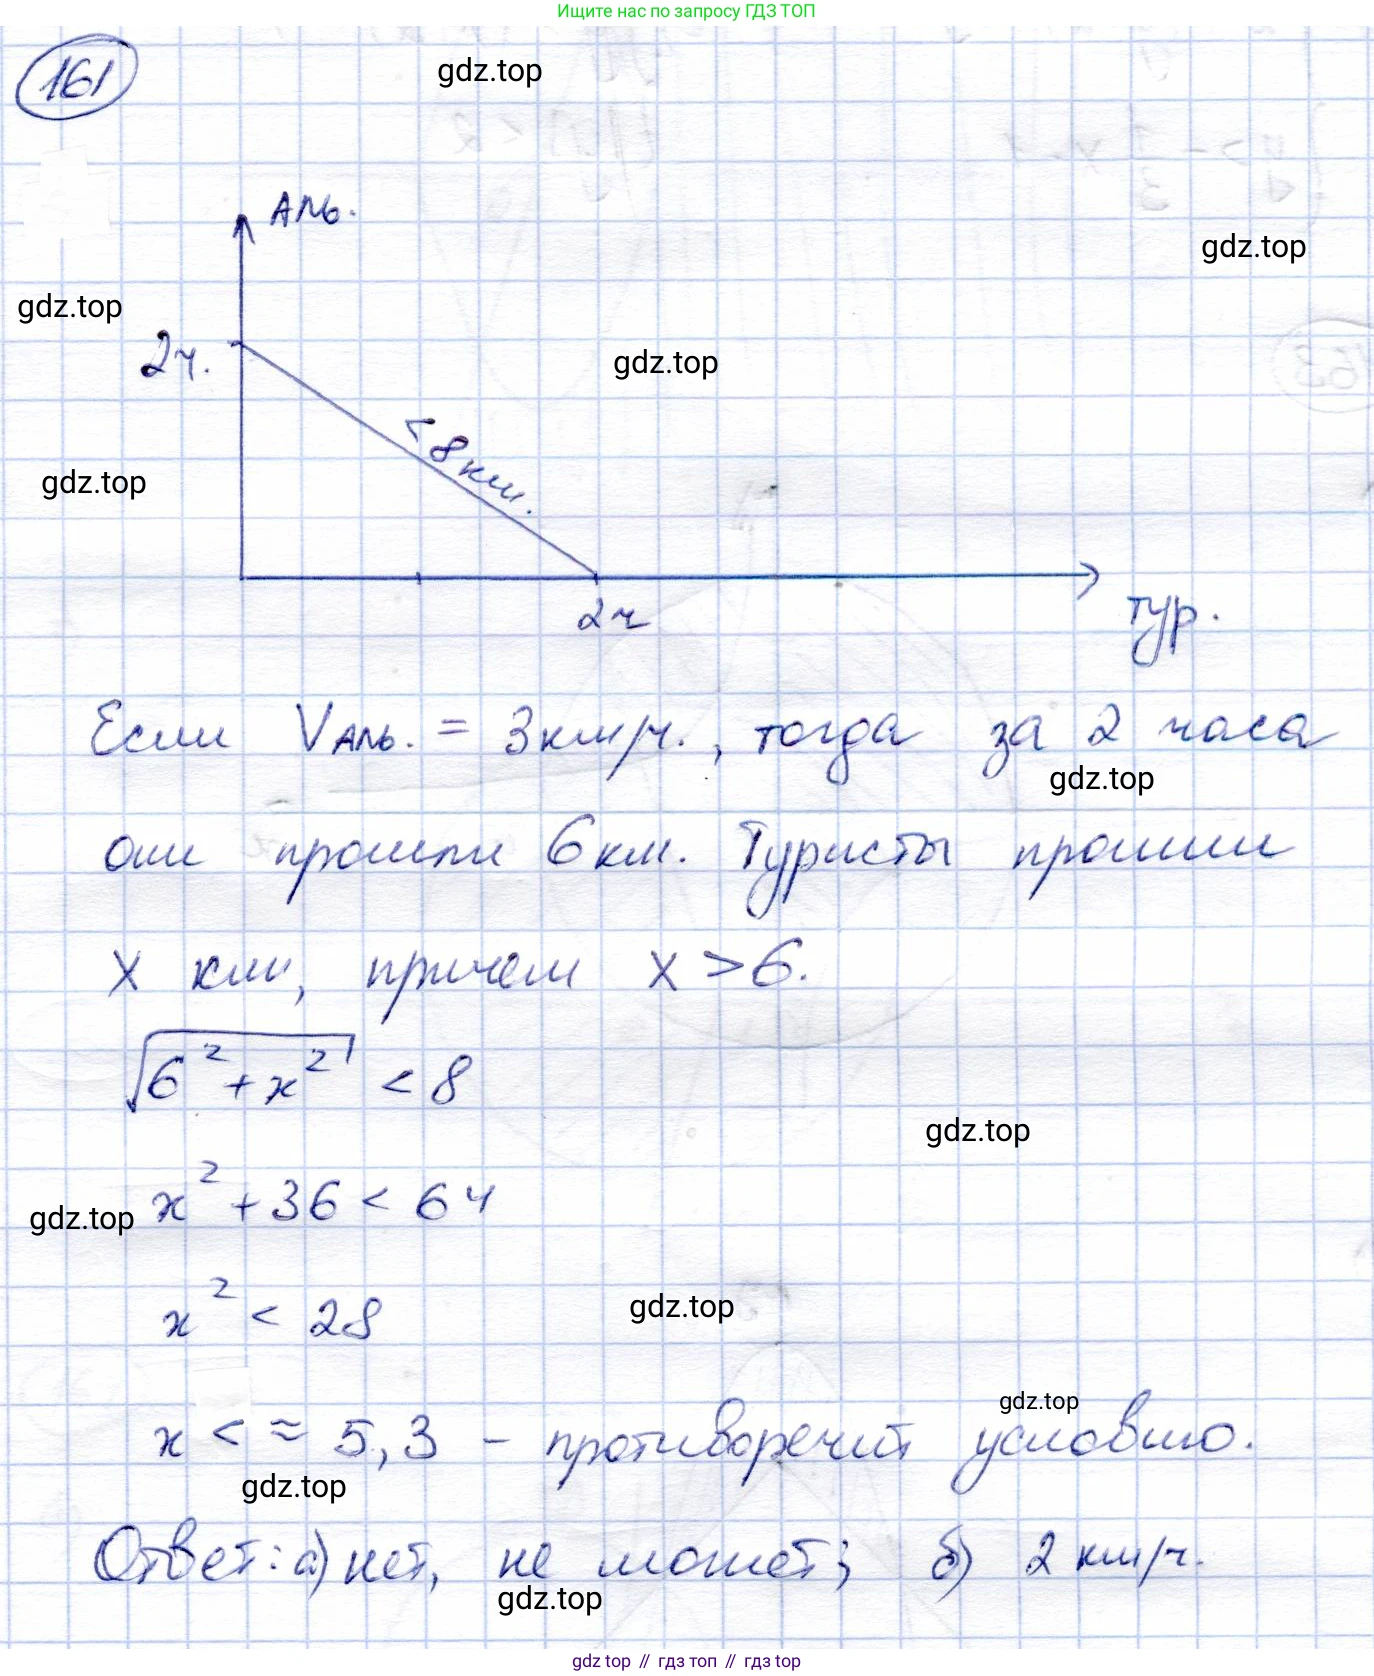 Ищите нас по запросу ГДЗ ТОП
161
gdz.top
Аль.
gdz.top
gdz.top
2ч.
gdz.top
< 8 км.
gdz.top
2ч
тур.
Если Vаль. = 3км/ч., тогда за 2 часа
gdz.top
они прошли 6 км. Туристы прошли
x км, причем x > 6.
√6² + x² < 8
gdz.top
x² + 36 < 64
gdz.top
x² < 28
gdz.top
gdz.top
x < ≈ 5,3 – противоречит условию.
gdz.top
Ответ: а) нет, не может; б) 2 км/ч.
gdz.top
gdz top // гдз топ // гдз top